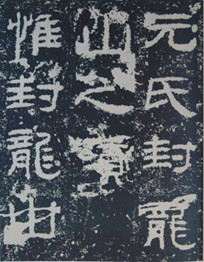 元氏封龍
山之頌
惟封龍山